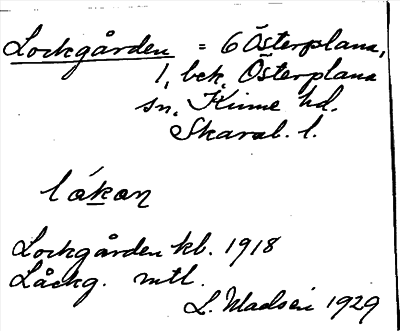 Lockgården = 6 Österplana,
1, bek. Österplana
sn, Kinne hd.
Skarab. l.
låkan
Lockgården kb. 1918
Låckg. mtl.
L. Madsén 1929